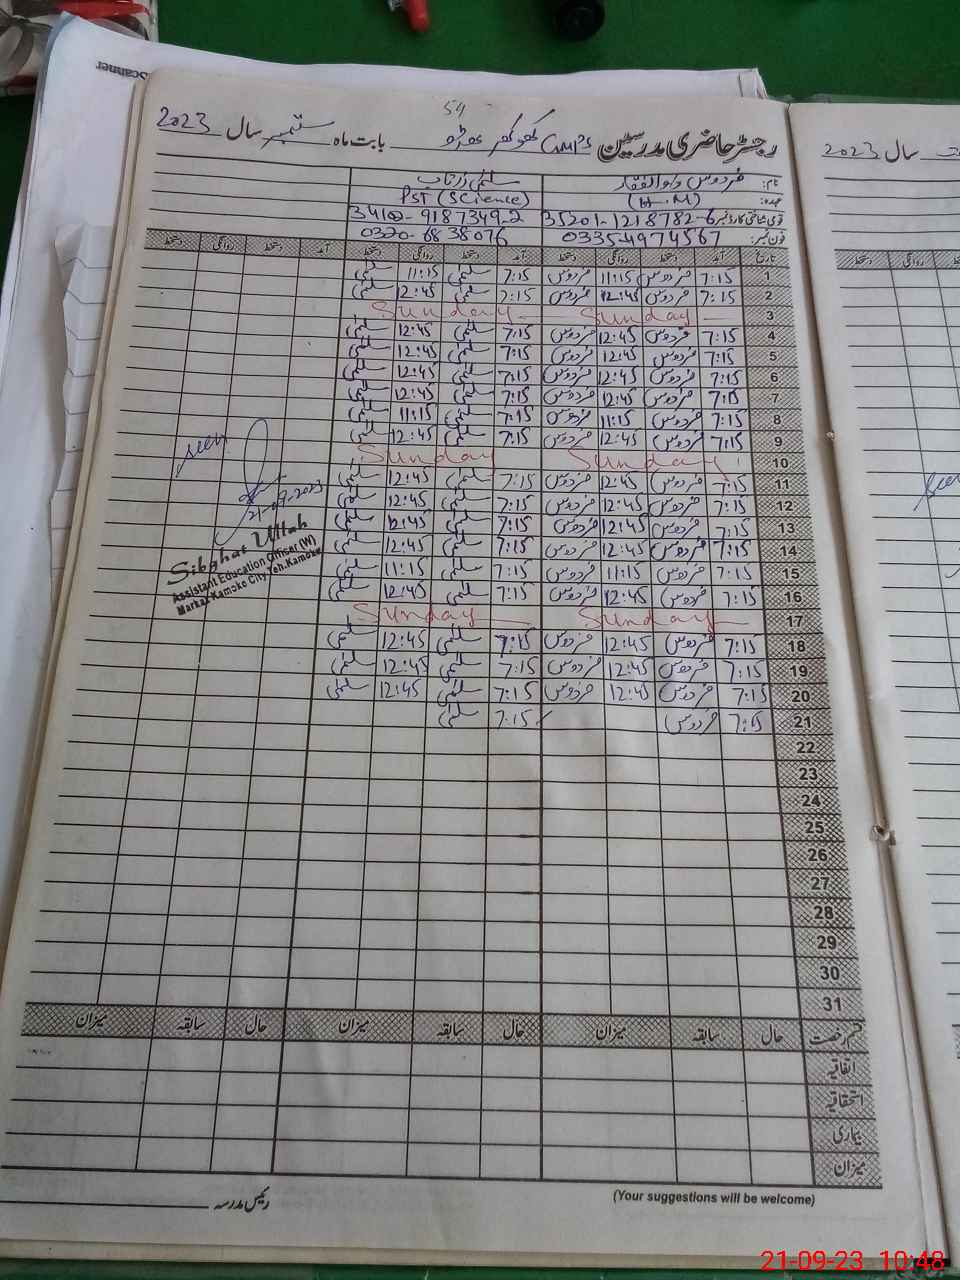 Scanner
54
رجسٹر حاضری مدرسین GMPS کھوکھر بابت ماہ ستمبر سال 2023
نام: فردوس ذوالفقار سلمیٰ زرتاب
عہدہ: (H.M) PST (Science)
قومی شناختی کارڈ نمبر 35201-1218782-6 34102-9187349-2
فون نمبر: 0335-4974567 0320-6838076
تاریخ آمد دستخط روانگی دستخط آمد دستخط روانگی دستخط آمد دستخط روانگی دستخط
1 7:15 فردوس 11:15 فردوس 7:15 سلمیٰ 11:15 سلمیٰ
2 7:15 فردوس 12:45 فردوس 7:15 سلمیٰ 12:45 سلمیٰ
3 Sunday Sunday
4 7:15 فردوس 12:45 فردوس 7:15 سلمیٰ 12:45 سلمیٰ
5 7:15 فردوس 12:45 فردوس 7:15 سلمیٰ 12:45 سلمیٰ
6 7:15 فردوس 12:45 فردوس 7:15 سلمیٰ 12:45 سلمیٰ
7 7:15 فردوس 12:45 فردوس 7:15 سلمیٰ 12:45 سلمیٰ
8 7:15 فردوس 11:15 فردوس 7:15 سلمیٰ 11:15 سلمیٰ
9 7:15 فردوس 12:45 فردوس 7:15 سلمیٰ 12:45 سلمیٰ
10 Sunday Sunday
11 7:15 فردوس 12:45 فردوس 7:15 سلمیٰ 12:45 سلمیٰ
12 7:15 فردوس 12:45 فردوس 7:15 سلمیٰ 12:45 سلمیٰ
13 7:15 فردوس 12:45 فردوس 7:15 سلمیٰ 12:45 سلمیٰ
14 7:15 فردوس 12:45 فردوس 7:15 سلمیٰ 12:45 سلمیٰ
15 7:15 فردوس 11:15 فردوس 7:15 سلمیٰ 11:15 سلمیٰ
16 7:15 فردوس 12:45 فردوس 7:15 سلمیٰ 12:45 سلمیٰ
17 Sunday Sunday
18 7:15 فردوس 12:45 فردوس 7:15 سلمیٰ 12:45 سلمیٰ
19 7:15 فردوس 12:45 فردوس 7:15 سلمیٰ 12:45 سلمیٰ
20 7:15 فردوس 12:45 فردوس 7:15 سلمیٰ 12:45 سلمیٰ
21 7:15 فردوس 7:15 سلمیٰ
22
23
24
25
26
27
28
29
30
31
seen
21-09-2023
Sibghat Ullah
Assistant Education Officer (W)
Markaz Kamoke City Teh.Kamoke
قسم رخصت حال سابقہ میزان حال سابقہ میزان حال سابقہ میزان
اتفاقیہ
استحقاقیہ
بیماری
میزان
(Your suggestions will be welcome)
رئیس مدرسہ
سال 2023
دستخط روانگی
seen
21-09-23 10:48